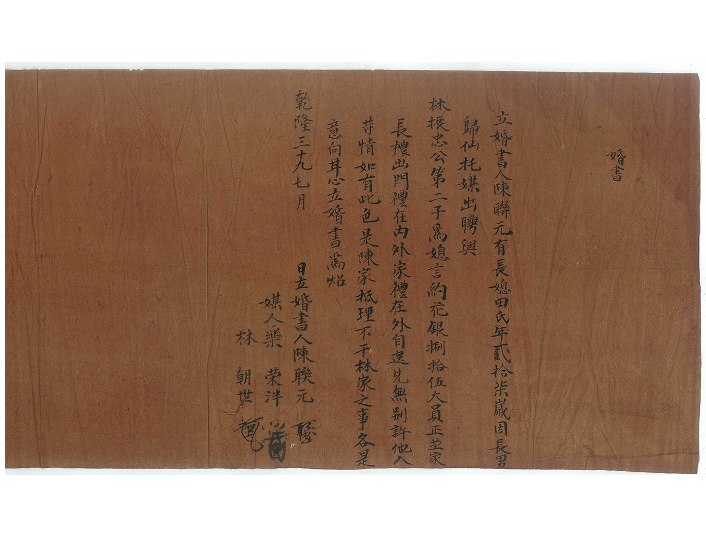 婚書
立婚書人陳聯元有長媳田氏年貳拾柒歲因長男
歸仙托媒出聘與
林振忠公第二子為媳言約花銀捌拾伍大員正並家
長禮出門禮在內外家禮在外自選先無別許他人
苛情如有此色是陳家抵理不干林家之事各是
意向耳心立婚書為炤
乾隆三十九七月 日立婚書人陳聯元
媒人藥榮泮
林朝世